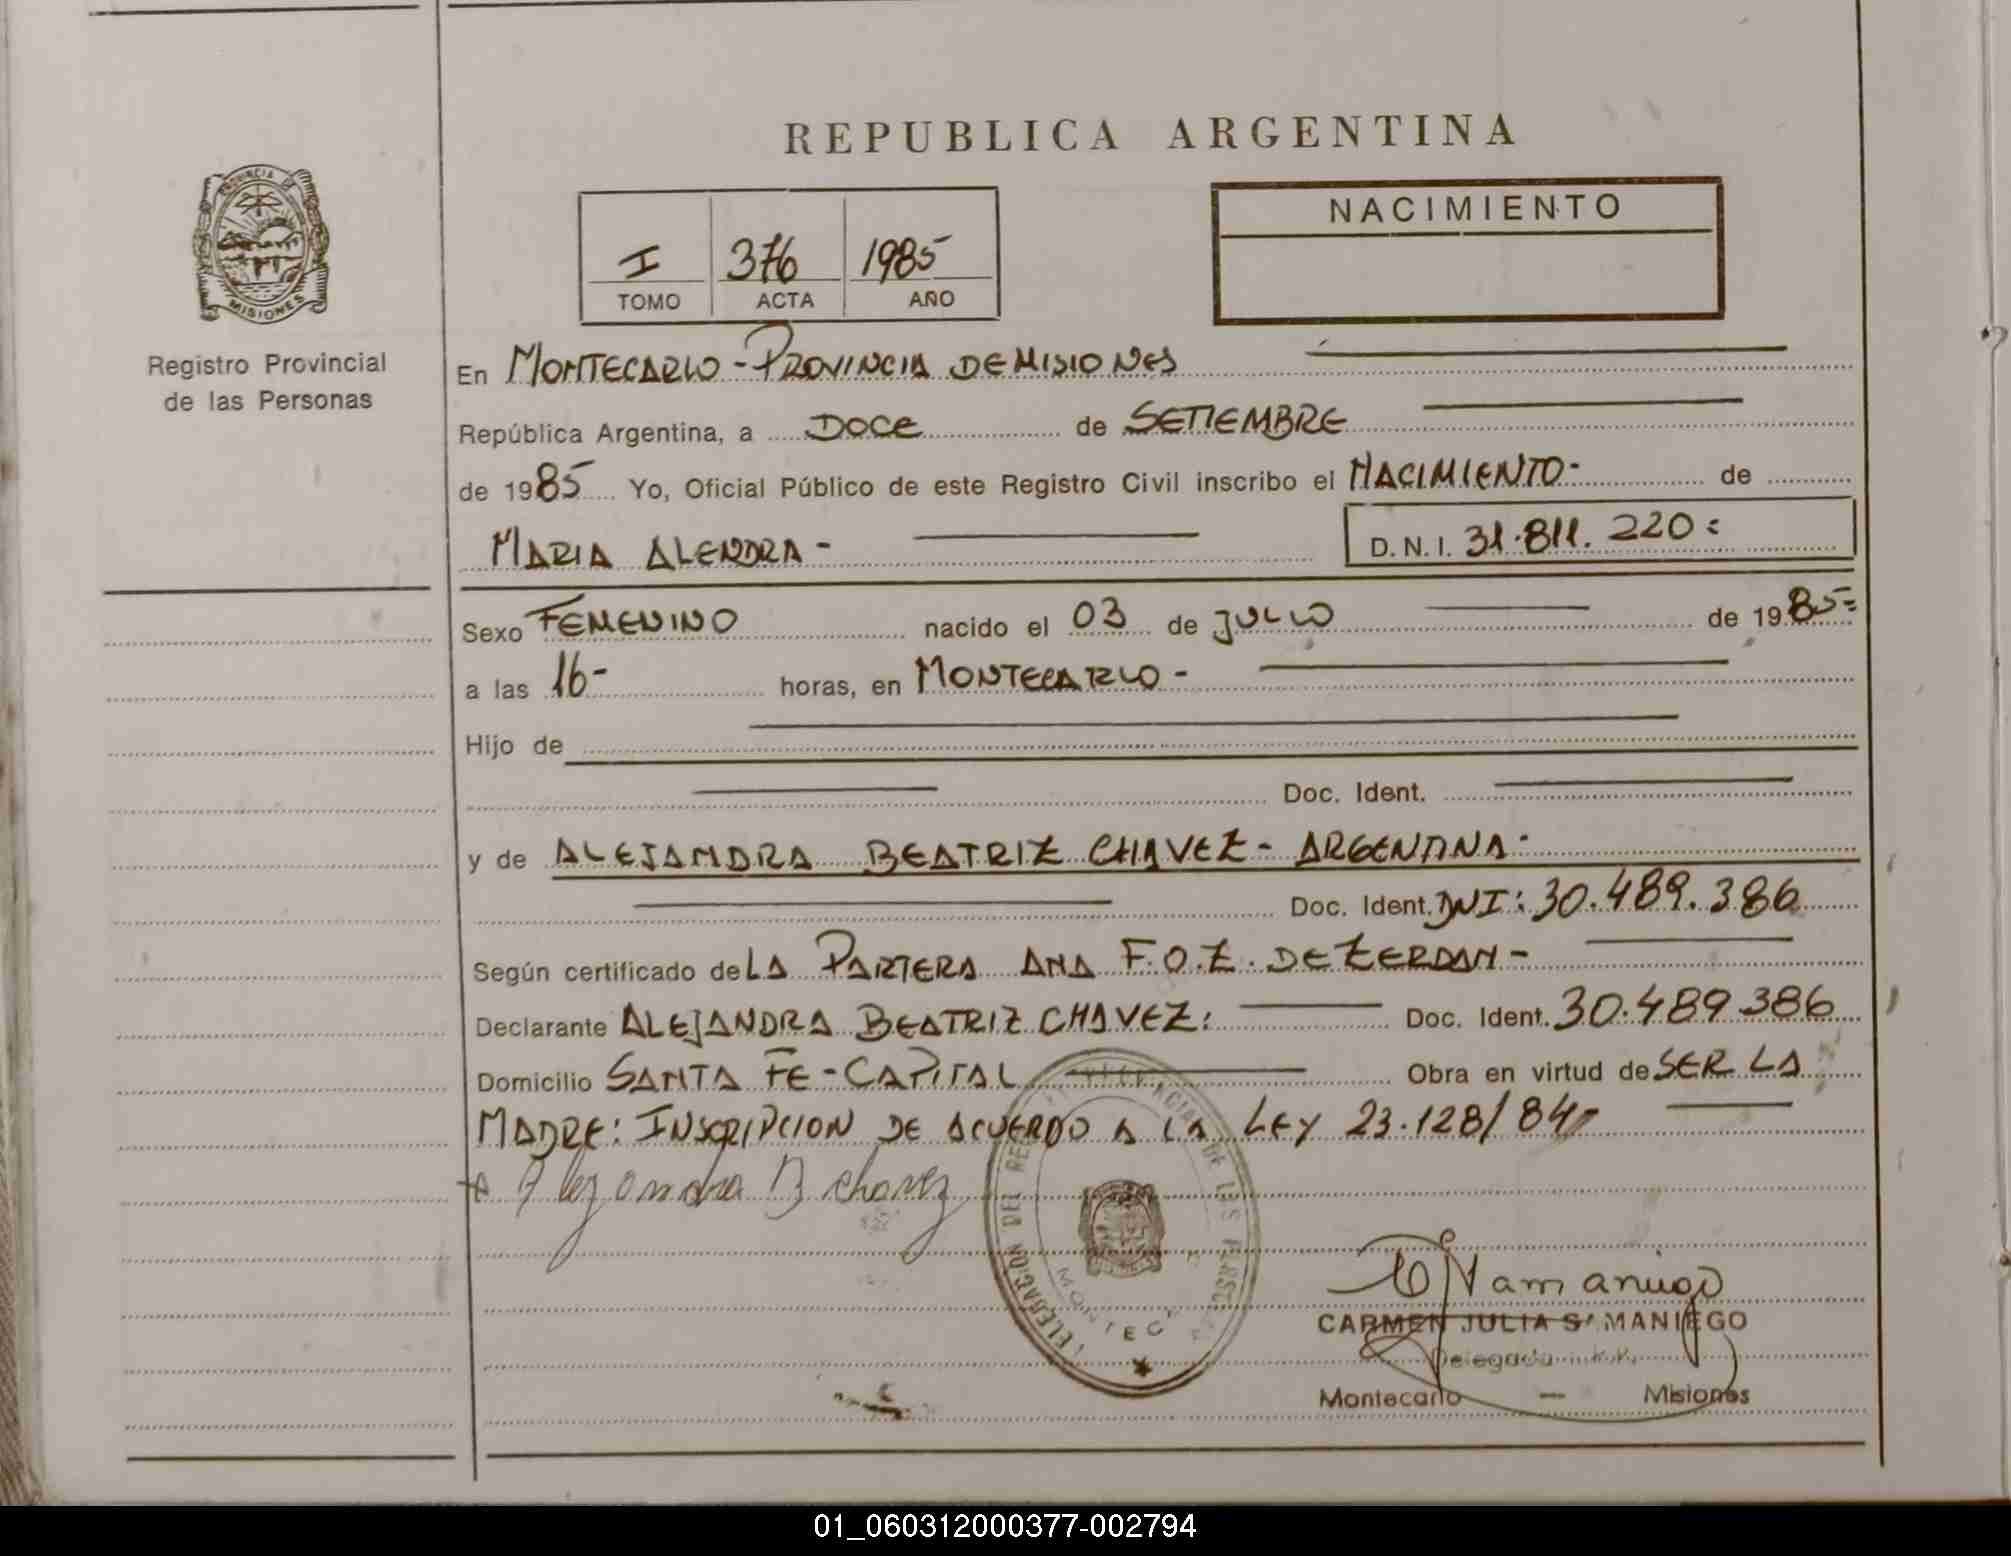 REPUBLICA ARGENTINA
PROVINCIA DE
MISIONES
Registro Provincial
de las Personas
NACIMIENTO
I 376 1985
TOMO ACTA AÑO
En MONTECARLO - PROVINCIA DE MISIONES
República Argentina, a DOCE de SETIEMBRE
de 1985 Yo, Oficial Público de este Registro Civil inscribo el NACIMIENTO- de
MARIA ALENDRA - D.N.I. 31.811.220=
Sexo FEMENINO nacido el 03 de JULIO de 1985=
a las 16- horas, en MONTECARLO -
Hijo de
Doc. Ident.
y de ALEJANDRA BEATRIZ CHAVEZ - ARGENTINA-
Doc. Ident. DNI: 30.489.386
Según certificado de LA PARTERA ANA F.O.Z. DE ZERDAN -
Declarante ALEJANDRA BEATRIZ CHAVEZ: Doc. Ident. 30.489.386
Domicilio SANTA FE - CAPITAL Obra en virtud de SER LA
MADRE: INSCRIPCION DE ACUERDO A LA LEY 23.128/84
Alejandra B chavez
CARMEN JULIA S MANIEGO
Delegada
Montecarlo — Misiones
01_060312000377-002794